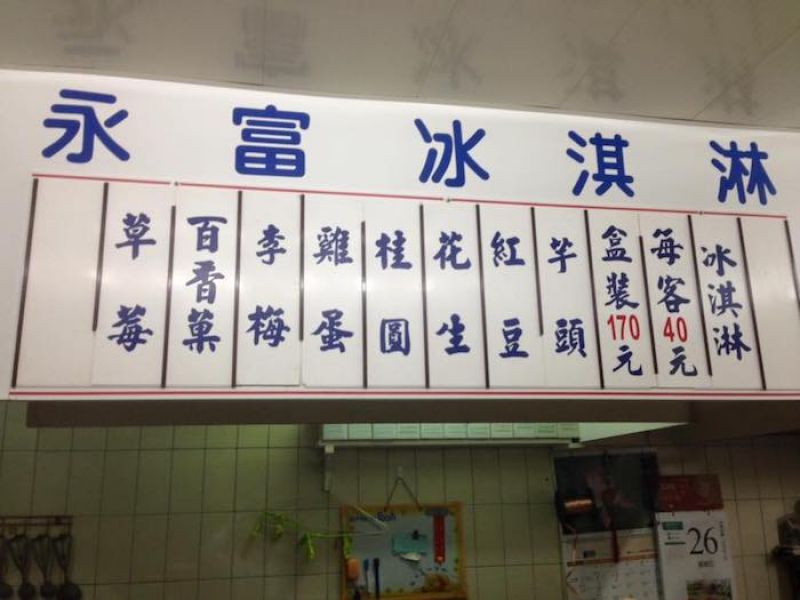 永富冰淇淋
冰淇淋
每客40元
盒裝170元
芋頭
紅豆
花生
桂圓
雞蛋
李梅
百香菓
草莓
26